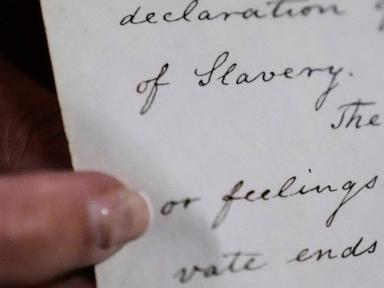 declaration
of Slavery.
The
or feelings
vate ends